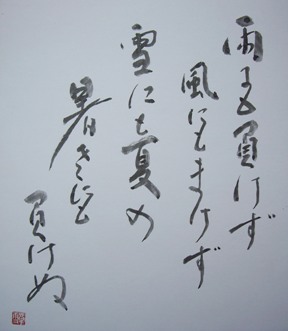 雨にも負けず
風にもまけず
雪にも夏の
暑さにも
負けぬ